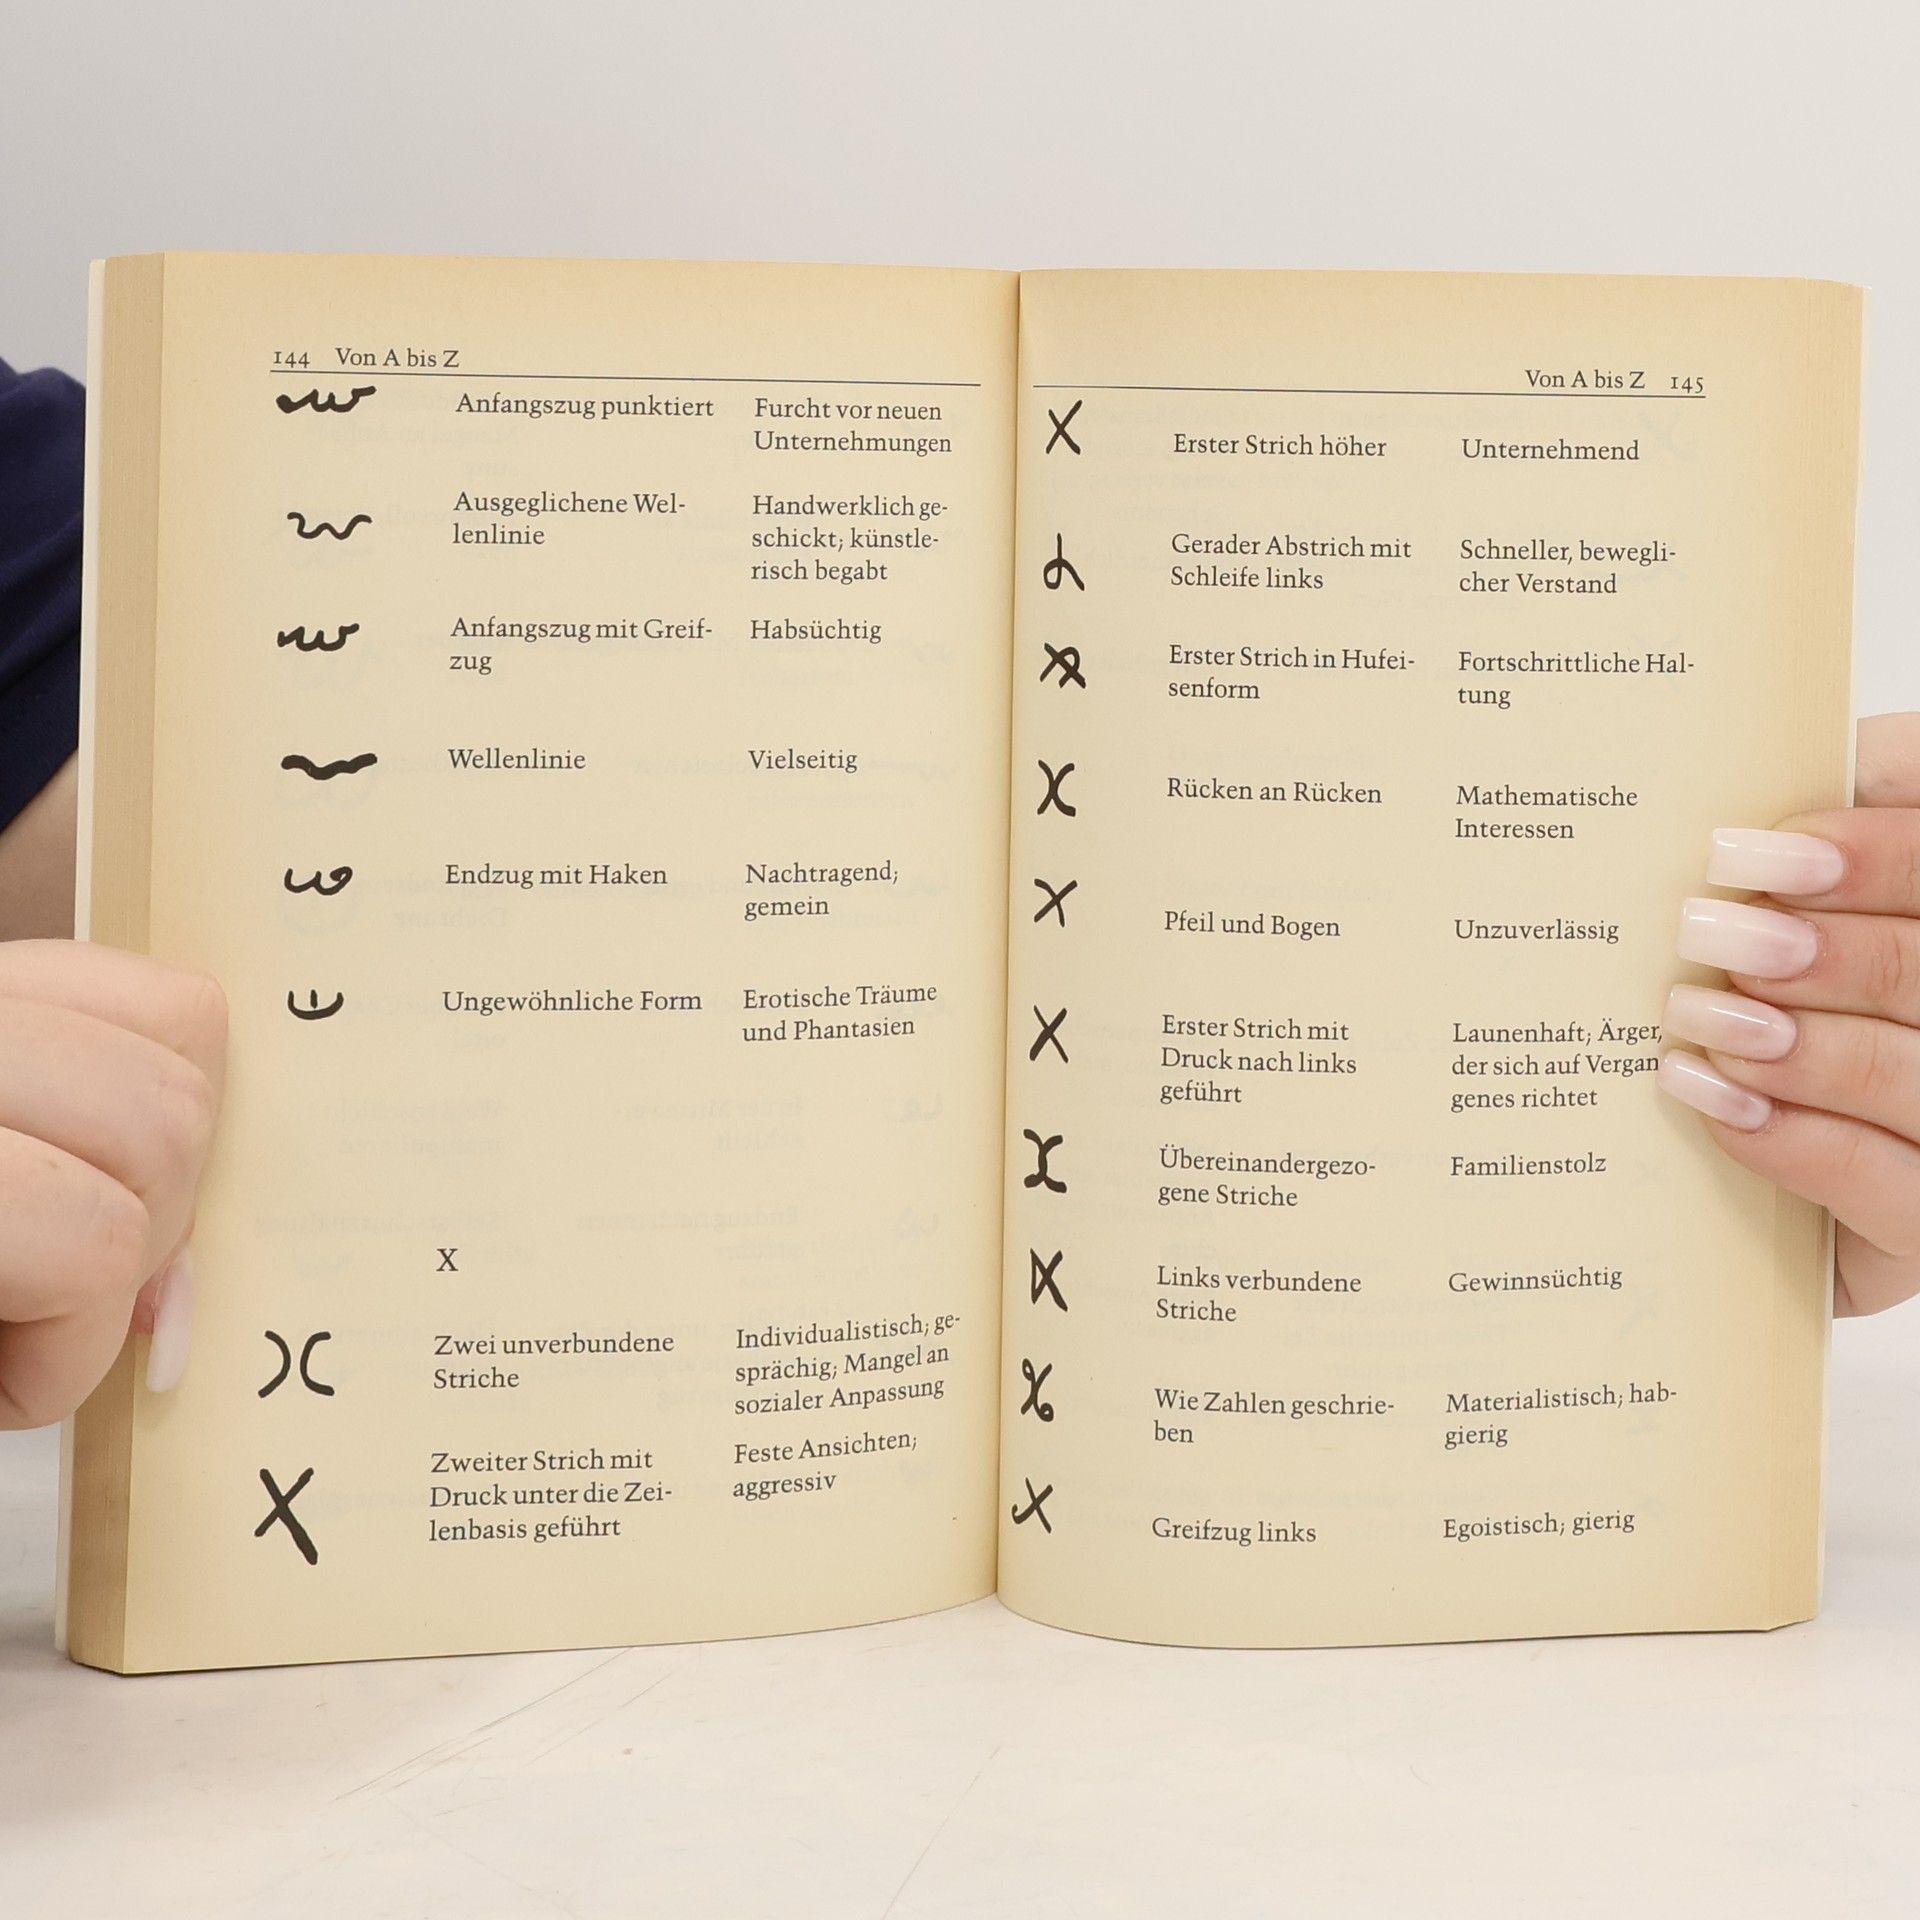 144 Von A bis Z
Anfangszug punktiert Furcht vor neuen
Unternehmungen
Ausgeglichene Wel- Handwerklich ge-
lenlinie schickt; künstle-
risch begabt
Anfangszug mit Greif- Habsüchtig
zug
Wellenlinie Vielseitig
Endzug mit Haken Nachtragend;
gemein
Ungewöhnliche Form Erotische Träume
und Phantasien
X
Zwei unverbundene Individualistisch; ge-
Striche sprächig; Mangel an
sozialer Anpassung
Zweiter Strich mit Feste Ansichten;
Druck unter die Zei- aggressiv
lenbasis geführt
Von A bis Z 145
Erster Strich höher Unternehmend
Gerader Abstrich mit Schneller, bewegli-
Schleife links cher Verstand
Erster Strich in Hufei- Fortschrittliche Hal-
senform tung
Rücken an Rücken Mathematische
Interessen
Pfeil und Bogen Unzuverlässig
Erster Strich mit Launenhaft; Ärger,
Druck nach links der sich auf Vergan
geführt genes richtet
Übereinandergezo- Familienstolz
gene Striche
Links verbundene Gewinnsüchtig
Striche
Wie Zahlen geschrie- Materialistisch; hab-
ben gierig
Greifzug links Egoistisch; gierig